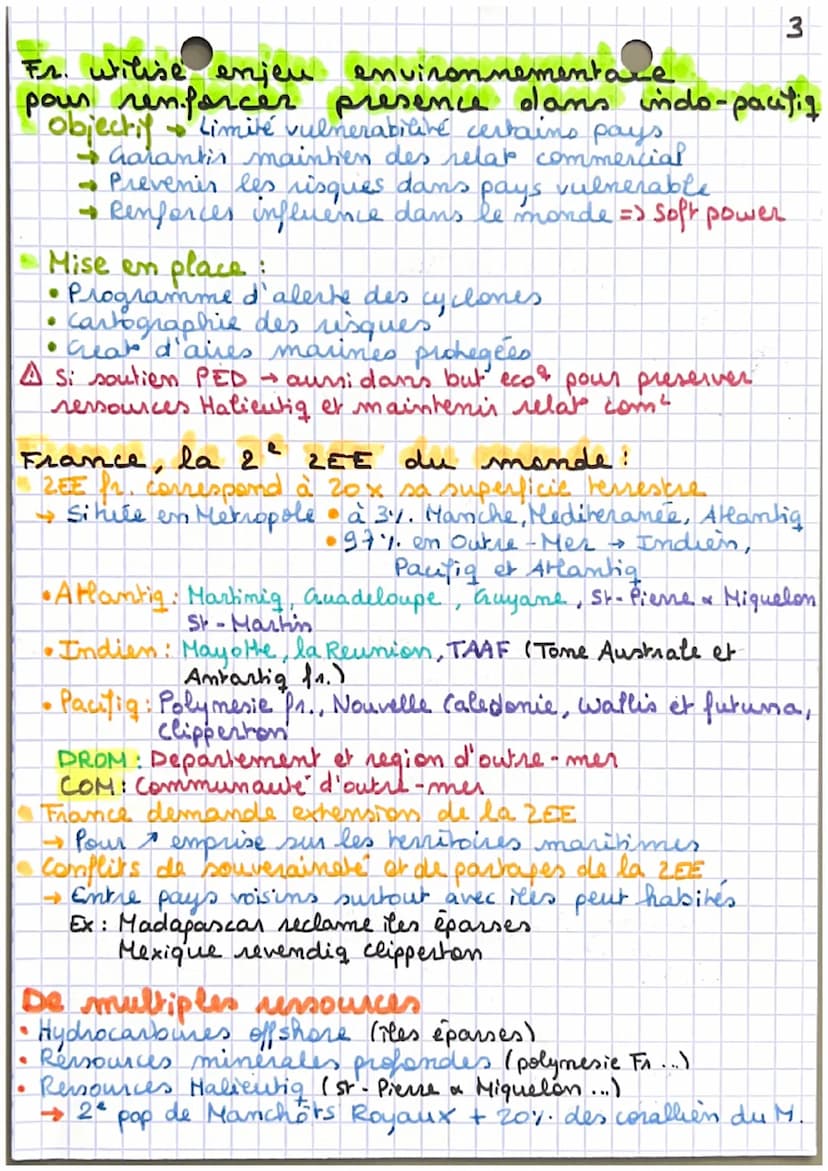 3
Fr. utilise enjeu environnementale
pour renforcer presence dans indo-pacifiq
Objectif → Limité vulnerabilité certains pays
→ Garantir maintien des relat° commercial
→ Prevenir les risques dans pays vulnerable
→ Renforcer influence dans le monde => Soft power
Mise en place :
• Programme d'alerte des cyclones
• Cartographie des risques
• Creat° d'aires marines protegées
⚠ Si soutien PED → aussi dans but ecoq pour preserver
ressources Halieutiq et maintenir relat° comL
France, la 2e ZEE du monde :
ZEE fr. correspond à 20x sa superficie terrestre
→ Située en Metropole • à 3%. Manche, Mediteranée, Atlantiq
• 97%. en Outre-Mer → Indien,
Pacifiq et Atlantiq
• Atlantiq : Martiniq, Guadeloupe, Guyane, St-Pierre & Miquelon
St-Martin
• Indien : Mayotte, la Reunion, TAAF (Terre Australe et
Antartiq fr.)
• Pacifiq : Polynesie fr., Nouvelle Caledonie, Wallis et futuna,
Clipperton
DROM : Departement et region d'outre-mer
COM : Communauté d'outre-mer
• France demande extension de la ZEE
→ Pour ↗ emprise sur les territoires maritimes
• Conflits de souveraineté et de partages de la ZEE
→ Entre pays voisins surtout avec iles peut habités
Ex : Madagascar reclame iles éparses
Mexique revendiq Clipperton
De multiples ressources
• Hydrocarbures offshore (îles éparses)
• Ressources minerales profondes (polynesie Fr...)
• Ressources Halieutiq (St-Pierre & Miquelon...)
→ 2e pop de Manchots Royaux + 20%. des corallien du M.